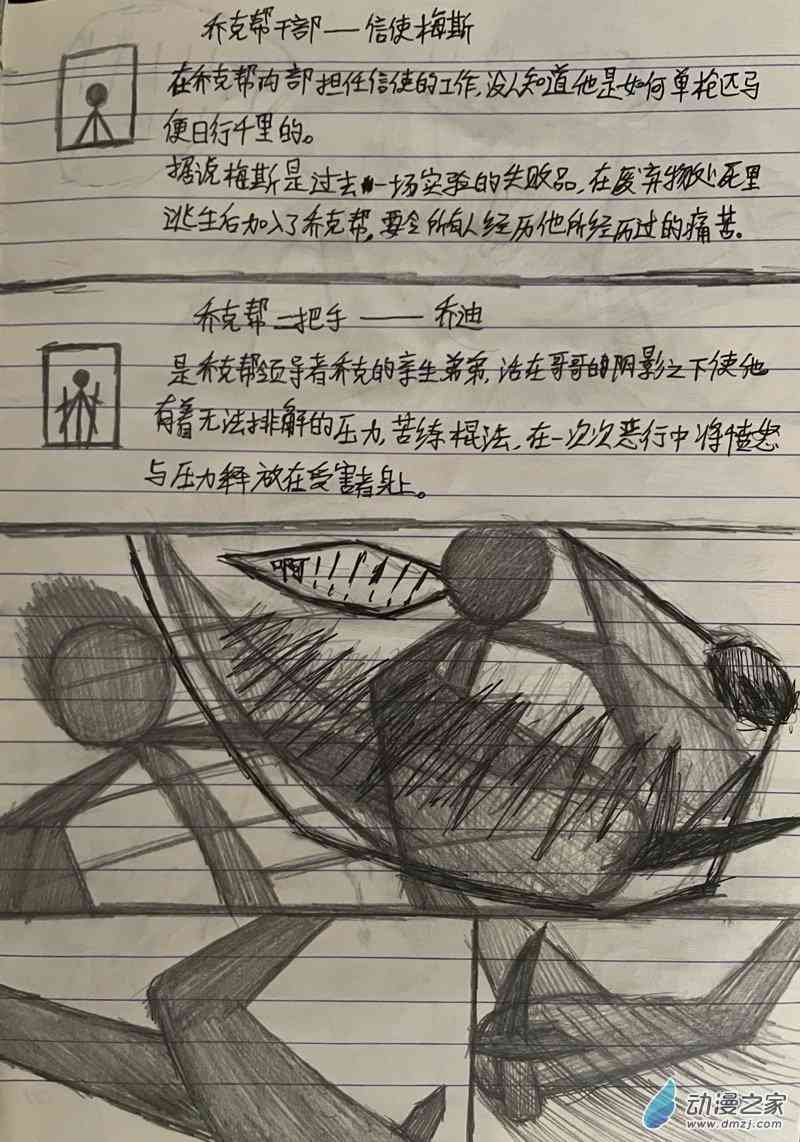 乔克帮干部——信使梅斯
在乔克帮内部担任信使的工作,没人知道他是如何单枪匹马
便日行千里的。
据说梅斯是过去一场实验的失败品,在废弃物处死里
逃生后加入了乔克帮,要令所有人经历他所经历过的痛苦。
乔克帮二把手——乔迪
是乔克帮领导者乔克的亲生弟弟,活在哥哥的阴影之下使他
有着无法排解的压力,苦练棍法,在一次次恶行中将愤怒
与压力释放在受害者身上。
啊!!!!!!
动漫之家
www.dmzj.com